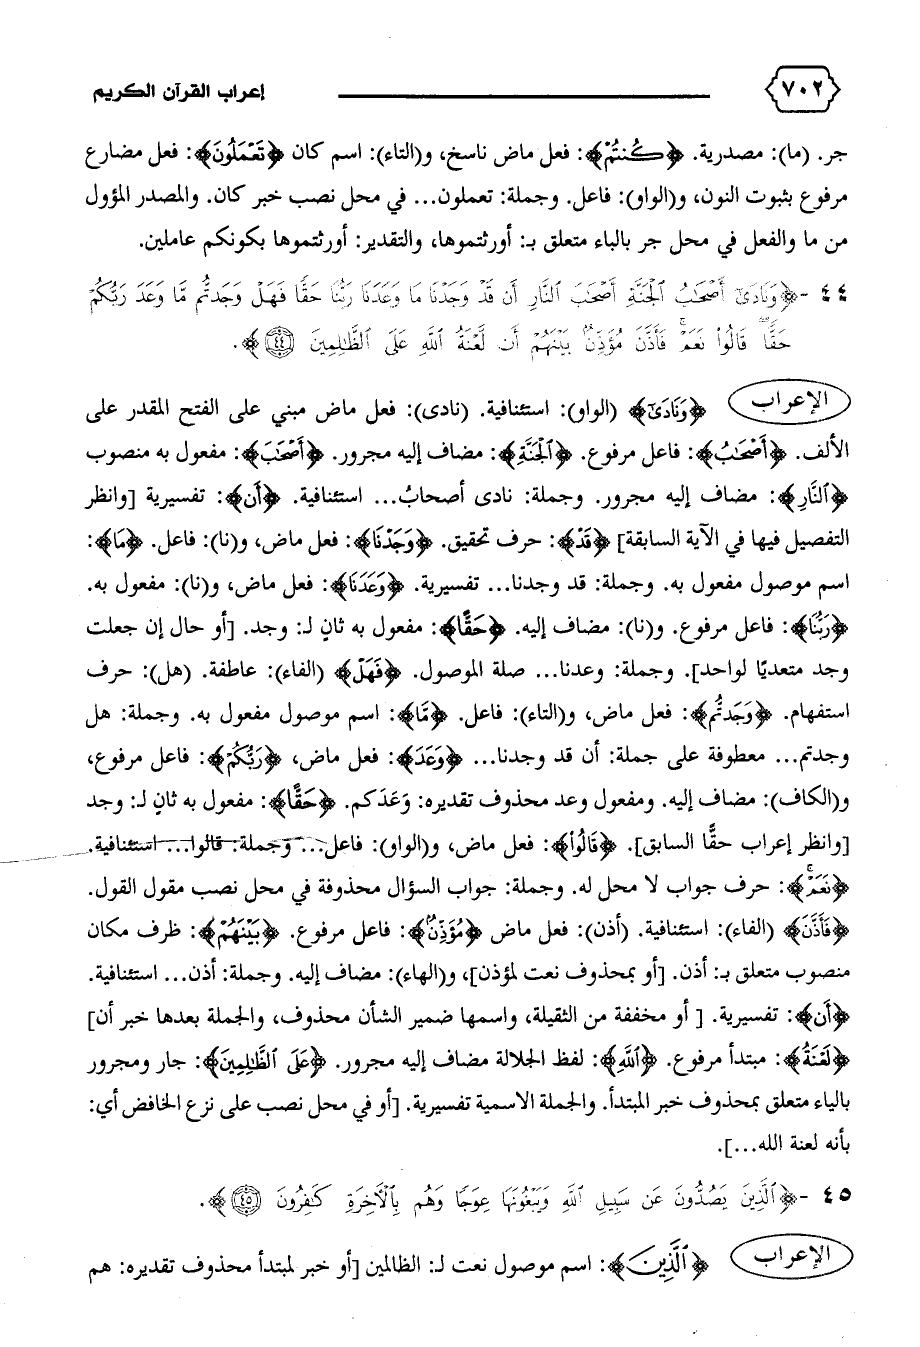 ٧٠٢ إعراب القرآن الكريم
جر. (ما): مصدرية. ﴿كُنتُمْ﴾: فعل ماض ناسخ، و(التاء): اسم كان ﴿تَعْمَلُونَ﴾: فعل مضارع
مرفوع بثبوت النون، و(الواو): فاعل. وجملة: تعملون... في محل نصب خبر كان. والمصدر المؤول
من ما والفعل في محل جر بالباء متعلق بـ: أورثتموها، والتقدير: أورثتموها بكونكم عاملين.
٤٤ - ﴿وَنَادَىٰٓ أَصْحَٰبُ ٱلْجَنَّةِ أَصْحَٰبَ ٱلنَّارِ أَن قَدْ وَجَدْنَا مَا وَعَدَنَا رَبُّنَا حَقًّا فَهَلْ وَجَدتُّم مَّا وَعَدَ رَبُّكُمْ
حَقًّا ۖ قَالُوا۟ نَعَمْ ۚ فَأَذَّنَ مُؤَذِّنٌۢ بَيْنَهُمْ أَن لَّعْنَةُ ٱللَّهِ عَلَى ٱلظَّٰلِمِينَ ٤٤﴾.
الإعراب ﴿وَنَادَىٰٓ﴾ (الواو): استئنافية. (نادى): فعل ماض مبني على الفتح المقدر على
الألف. ﴿أَصْحَٰبُ﴾: فاعل مرفوع. ﴿ٱلْجَنَّةِ﴾: مضاف إليه مجرور. ﴿أَصْحَٰبَ﴾: مفعول به منصوب
﴿ٱلنَّارِ﴾: مضاف إليه مجرور. وجملة: نادى أصحابُ... استئنافية. ﴿أَن﴾: تفسيرية [وانظر
التفصيل فيها في الآية السابقة] ﴿قَدْ﴾: حرف تحقيق. ﴿وَجَدْنَا﴾: فعل ماض، و(نا): فاعل. ﴿مَا﴾:
اسم موصول مفعول به. وجملة: قد وجدنا... تفسيرية. ﴿وَعَدَنَا﴾: فعل ماض، و(نا): مفعول به.
﴿رَبُّنَا﴾: فاعل مرفوع. و(نا): مضاف إليه. ﴿حَقًّا﴾: مفعول به ثانٍ لـ: وجد. [أو حال إن جعلت
وجد متعديًا لواحد]. وجملة: وعدنا... صلة الموصول. ﴿فَهَلْ﴾ (الفاء): عاطفة. (هل): حرف
استفهام. ﴿وَجَدتُّم﴾: فعل ماض، و(التاء): فاعل. ﴿مَّا﴾: اسم موصول مفعول به. وجملة: هل
وجدتم... معطوفة على جملة: أن قد وجدنا... ﴿وَعَدَ﴾: فعل ماض، ﴿رَبُّكُمْ﴾: فاعل مرفوع،
و(الكاف): مضاف إليه. ومفعول وعد محذوف تقديره: وَعَدَكم. ﴿حَقًّا﴾: مفعول به ثانٍ لـ: وجد
[وانظر إعراب حقًّا السابق]. ﴿قَالُوا۟﴾: فعل ماض، و(الواو): فاعل... وجملة: قالوا... استئنافية.
﴿نَعَمْ ۚ﴾: حرف جواب لا محل له. وجملة: جواب السؤال محذوفة في محل نصب مقول القول.
﴿فَأَذَّنَ﴾ (الفاء): استئنافية. (أذن): فعل ماض ﴿مُؤَذِّنٌۢ﴾: فاعل مرفوع. ﴿بَيْنَهُمْ﴾: ظرف مكان
منصوب متعلق بـ: أذن. [أو بمحذوف نعت لمؤذن]، و(الهاء): مضاف إليه. وجملة: أذن... استئنافية.
﴿أَن﴾: تفسيرية. [ أو مخففة من الثقيلة، واسمها ضمير الشأن محذوف، والجملة بعدها خبر أن]
﴿لَعْنَةُ﴾: مبتدأ مرفوع. ﴿ٱللَّهِ﴾: لفظ الجلالة مضاف إليه مجرور. ﴿عَلَى ٱلظَّٰلِمِينَ﴾: جار ومجرور
بالياء متعلق بمحذوف خبر المبتدأ. والجملة الاسمية تفسيرية. [أو في محل نصب على نزع الخافض أي:
بأنه لعنة الله...].
٤٥ - ﴿ٱلَّذِينَ يَصُدُّونَ عَن سَبِيلِ ٱللَّهِ وَيَبْغُونَهَا عِوَجًا وَهُم بِٱلْءَاخِرَةِ كَٰفِرُونَ ٤٥﴾.
الإعراب ﴿ٱلَّذِينَ﴾: اسم موصول نعت لـ: الظالمين [أو خبر لمبتدأ محذوف تقديره: هم